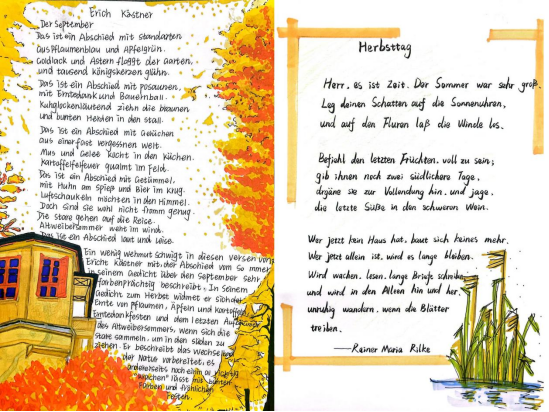 Erich Kästner
Der September
Das ist ein Abschied mit standarten
aus Pflaumenblau und Apfelgrün.
Goldlack und Astern flaggt der Garten,
und tausend Königskerzen glühn.
Das ist ein Abschied mit Posaunen,
mit Erntedank und Bauernball.
Kuhglockenläutend ziehn die braunen
und bunten Herden in den Stall.
Das ist ein Abschied mit Gerüchen
aus einer fast vergessnen Welt.
Mus und Gelee kocht in den Küchen.
Kartoffelfeuer qualmt im Feld.
Das ist ein Abschied mit Getümmel,
mit Huhn am Spieß und Bier im Krug.
Luftschaukeln möchten in den Himmel.
Doch sind sie wohl nicht fromm genug.
Die Stare gehen auf die Reise.
Altweibersommer weht im Wind.
Das ist ein Abschied laut und leise.
Ein wenig wehmut schwingt in diesen Versen von
Erich Kästner mit, der Abschied vom Sommer
in seinem Gedicht über den September sehr
farbenprächtig beschreibt. In seinem
Gedicht zum Herbst widmet er sich der
Ernte von Pflaumen, Äpfeln und Kartoffeln
Erntedankfesten und dem letzten
des Altweibersommers, wenn sich die
stare sammeln, um in den süden zu
ziehen. Er beschreibt das wechselspiel
der Natur vorbereitet, es
andererseits noch einmal richtig
lässt mit bunten
Farben und fröhlichen
Festen.
Herbsttag
Herr, es ist Zeit. Der Sommer war sehr groß.
Leg deinen Schatten auf die Sonnenuhren,
und auf den Fluren laß die Winde los.
Befiehl den letzten Früchten, voll zu sein;
gib ihnen noch zwei südlichere Tage,
dränge sie zur Vollendung hin, und jage,
die letzte Süße in den schweren Wein.
Wer jetzt kein Haus hat, baut sich keines mehr.
Wer jetzt allein ist, wird es lange bleiben.
Wird wachen, lesen, lange Briefe schreiben
und wird in den Alleen hin und her,
unruhig wandern, wenn die Blätter
treiben.
——Rainer Maria Rilke